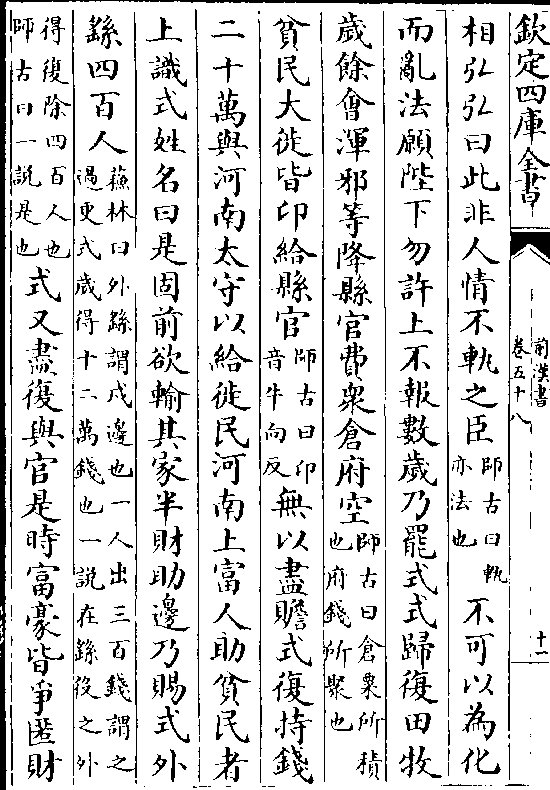 欽定四庫全書
前漢書
卷五十八
十二
相弘弘曰此非人情不軌之臣師古曰軌亦法也不可以為化
而亂法願陛下勿許上不報數歲乃罷式式歸復田牧
歲餘會渾邪等降縣官費衆倉府空師古曰倉粟所積也府錢所聚也
貧民大徙皆卬給縣官師古曰卬音牛向反無以盡贍式復持錢
二十萬與河南太守以給徙民河南上富人助貧民者
上識式姓名曰是固前欲輸其家半財助邊乃賜式外
繇四百人蘇林曰外繇謂戍邊也一人出三百錢謂之過更式歲得十二萬錢也一說在繇役之外
得復除四百人也師古曰一說是也式又盡復與官是時富豪皆爭匿財